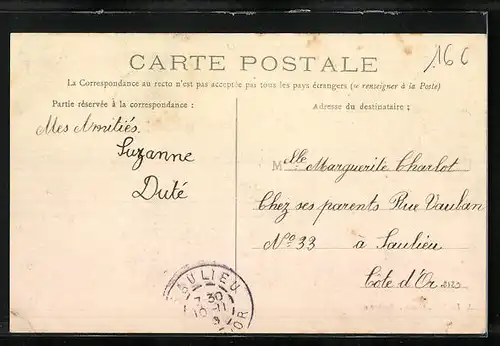 CARTE POSTALE
16 C
La Correspondance au recto n'est pas acceptée pas tous les pays étrangers (se renseigner à la Poste)
Partie réservée à la correspondance :
Adresse du destinataire :
Mes Amitiés.
Suzanne
Duté
Mlle Marguerite Charlot
Chez ses parents Rue Vauban
No 33 à Saulieu
Côte d'Or
SAULIEU
30
OR